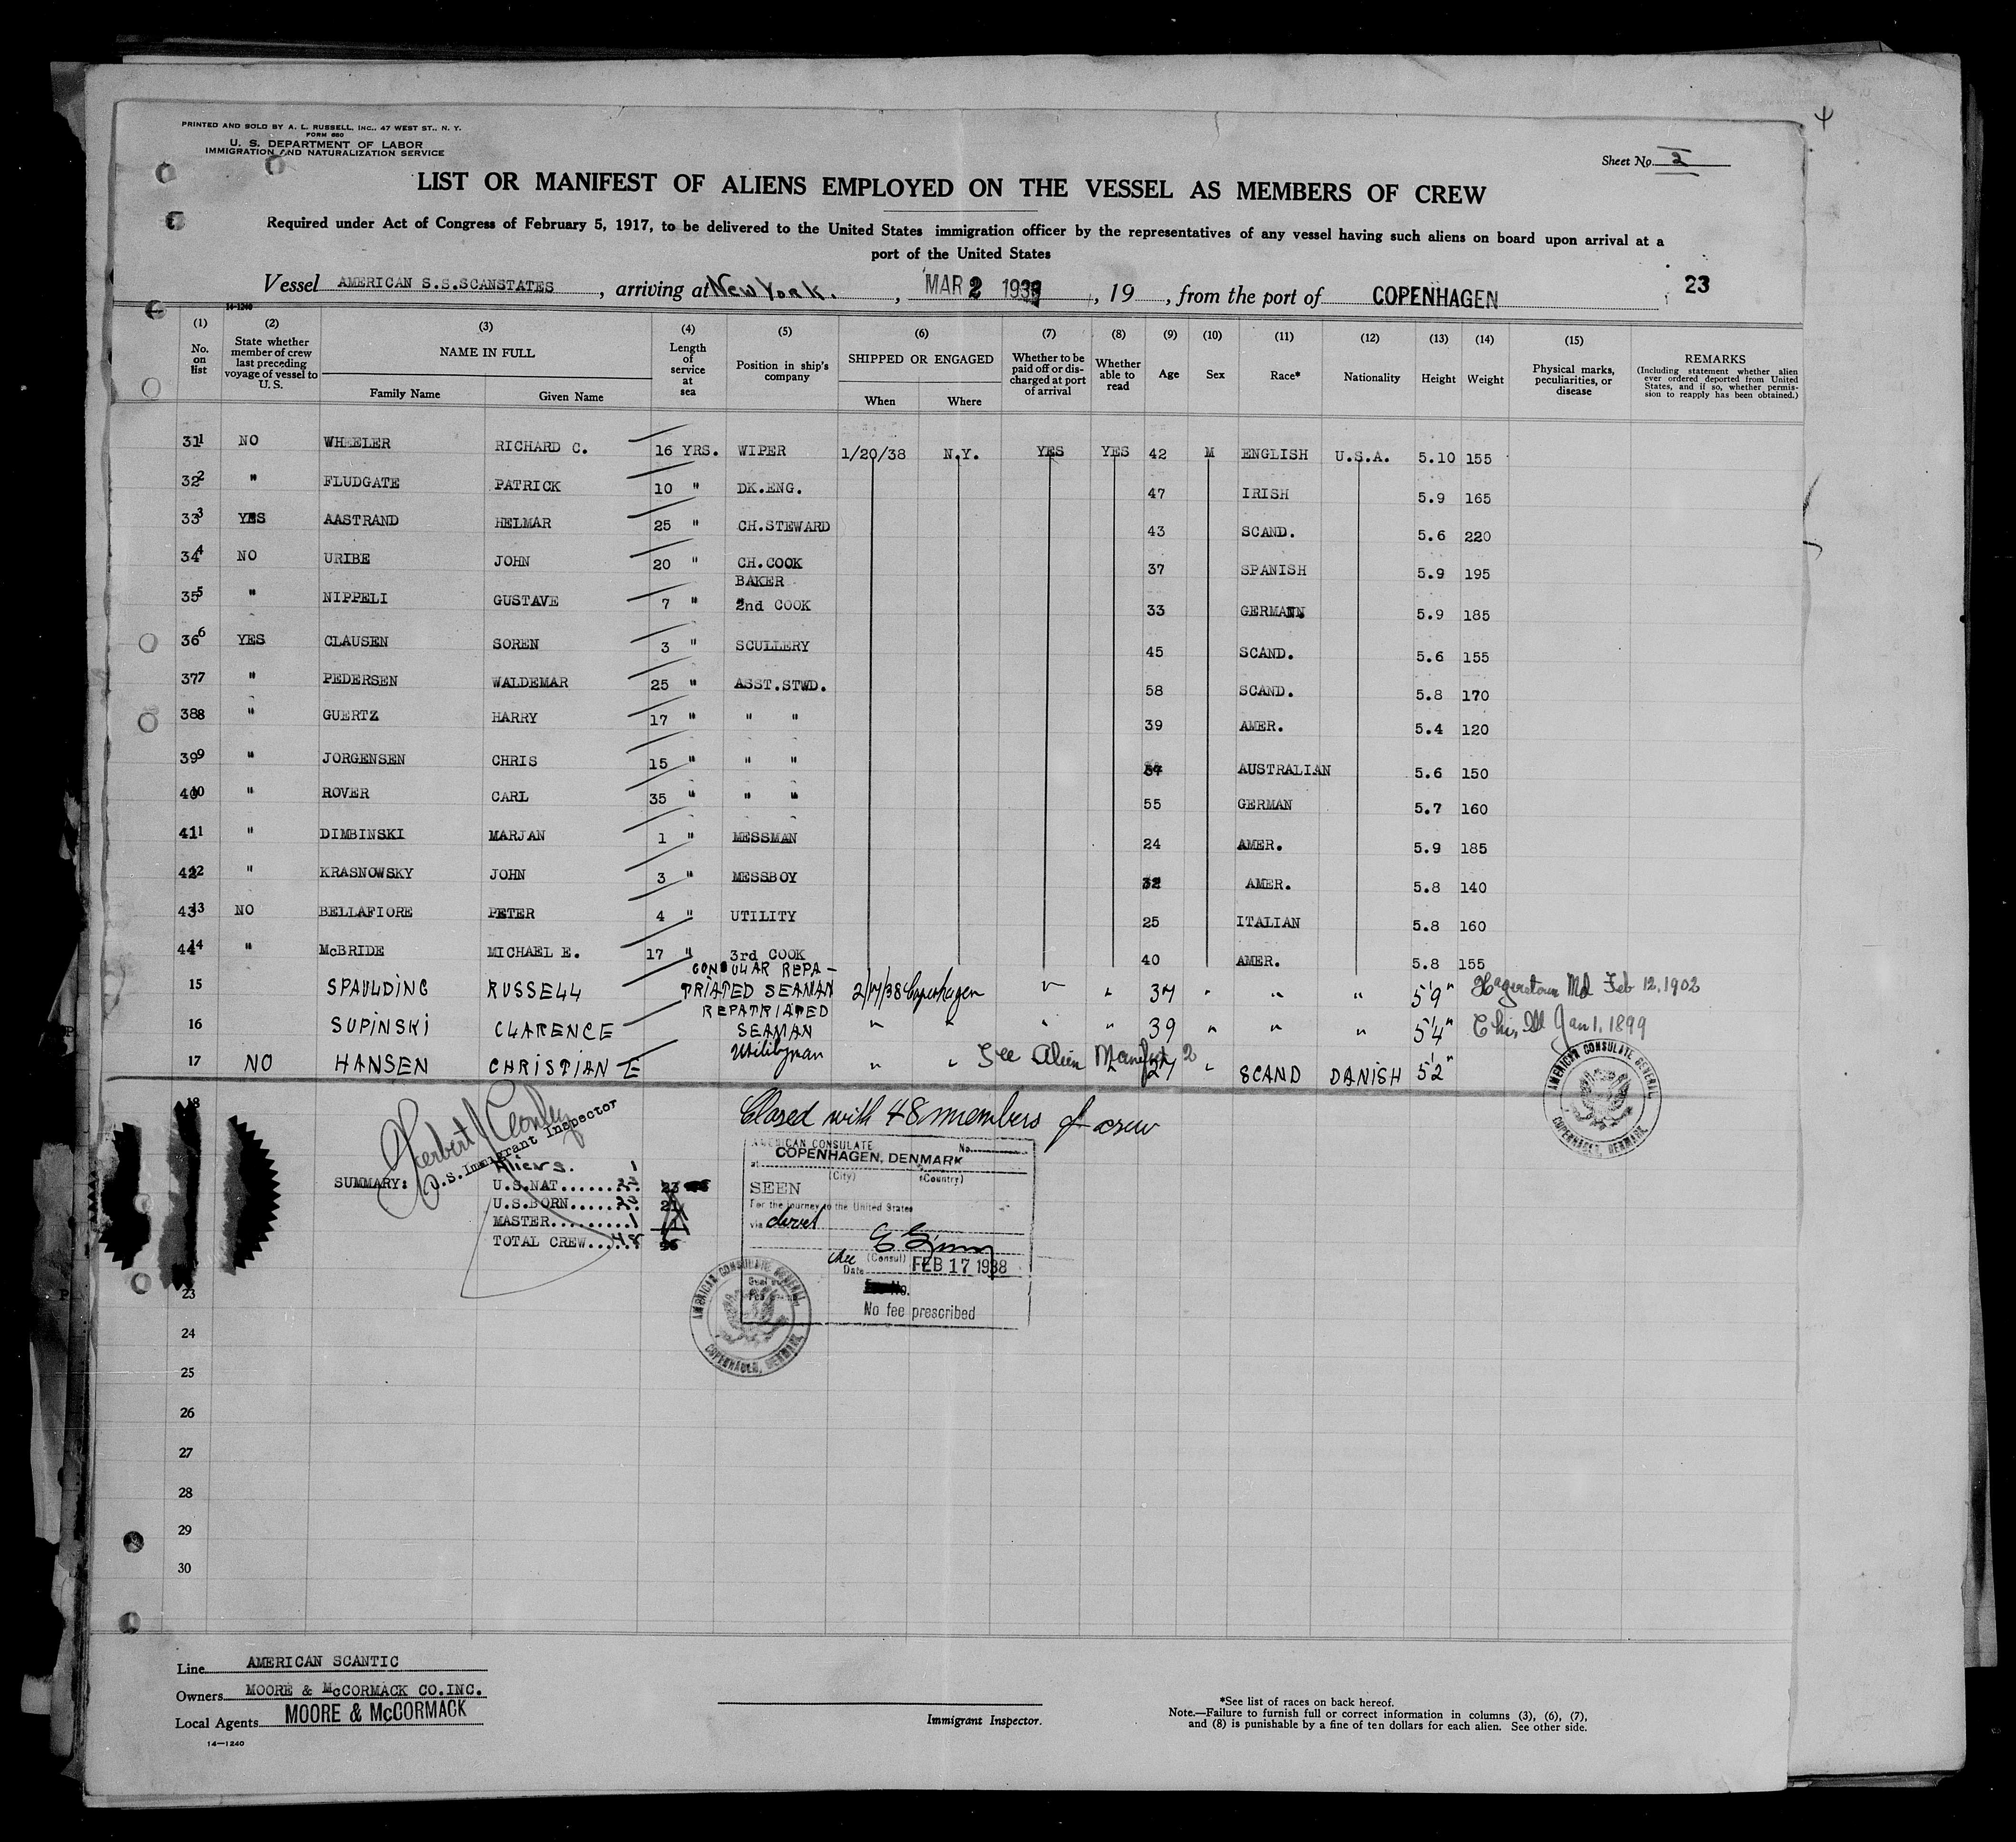 PRINTED AND SOLD BY A. L. RUSSELL, INC., 47 WEST ST., N. Y.
FORM 680
U. S. DEPARTMENT OF LABOR
IMMIGRATION AND NATURALIZATION SERVICE
Sheet No. 2
LIST OR MANIFEST OF ALIENS EMPLOYED ON THE VESSEL AS MEMBERS OF CREW
Required under Act of Congress of February 5, 1917, to be delivered to the United States immigration officer by the representatives of any vessel having such aliens on board upon arrival at a
port of the United States
Vessel AMERICAN S.S.SCANSTATES, arriving at New York., MAR 2 1938, 19, from the port of COPENHAGEN
23
14-1240
(1) (2) (3) (4) (5) (6) (7) (8) (9) (10) (11) (12) (13) (14) (15)
No. on list
State whether member of crew last preceding voyage of vessel to U. S.
NAME IN FULL
Family Name
Given Name
Length of service at sea
Position in ship's company
SHIPPED OR ENGAGED
When
Where
Whether to be paid off or discharged at port of arrival
Whether able to read
Age
Sex
Race*
Nationality
Height
Weight
Physical marks, peculiarities, or disease
REMARKS
(Including statement whether alien ever ordered deported from United States, and if so, whether permission to reapply has been obtained.)
31 1 NO WHEELER RICHARD C. 16 YRS. WIPER 1/20/38 N.Y. YES YES 42 M ENGLISH U.S.A. 5.10 155
32 2 " FLUDGATE PATRICK 10 " DK.ENG. 47 IRISH 5.9 165
33 3 YES AASTRAND HELMAR 25 " CH.STEWARD 43 SCAND. 5.6 220
34 4 NO URIBE JOHN 20 " CH.COOK 37 SPANISH 5.9 195
35 5 " NIPPELI GUSTAVE 7 " BAKER 2nd COOK 33 GERMAN 5.9 185
36 6 YES CLAUSEN SOREN 3 " SCULLERY 45 SCAND. 5.6 155
37 7 " PEDERSEN WALDEMAR 25 " ASST.STWD. 58 SCAND. 5.8 170
38 8 " GUERTZ HARRY 17 " " " 39 AMER. 5.4 120
39 9 " JORGENSEN CHRIS 15 " " " AUSTRALIAN 5.6 150
40 10 " ROVER CARL 35 " " " 55 GERMAN 5.7 160
41 1 " DIMBINSKI MARJAN 1 " MESSMAN 24 AMER. 5.9 185
42 12 " KRASNOWSKY JOHN 3 " MESSBOY 32 AMER. 5.8 140
43 13 NO BELLAFIORE PETER 4 " UTILITY 25 ITALIAN 5.8 160
44 14 " McBRIDE MICHAEL E. 17 " 3rd COOK 40 AMER. 5.8 155
15 SPAULDING RUSSELL CONSULAR REPA-
TRIATED SEAMAN 2/17/38 Copenhagen " " 37 " " " 5'9" Hagerstown Md Feb 12, 1902
16 SUPINSKI CLARENCE REPATRIATED
SEAMAN " " " " 39 " " " 5'4" Chi, Ill Jan 1, 1899
17 NO HANSEN CHRISTIAN E Utilityman " " See Alien Manifest 2 27 " SCAND DANISH 5'2"
18
Closed with 48 members of crew
U.S. Immigrant Inspector
SUMMARY:
Aliens. 1
U.S.NAT......
U.S.BORN.....
MASTER.........1
TOTAL CREW......48
AMERICAN CONSULATE
No.
at COPENHAGEN, DENMARK
(City) (Country)
SEEN
For the journey to the United States
via direct
(Consul)
Date FEB 17 1938
No fee prescribed
AMERICAN CONSULATE GENERAL, COPENHAGEN, DENMARK
AMERICAN CONSULATE GENERAL, COPENHAGEN, DENMARK
23
24
25
26
27
28
29
30
Line AMERICAN SCANTIC
Owners MOORE & McCORMACK CO.INC.
Local Agents MOORE & McCORMACK
14—1240
Immigrant Inspector.
*See list of races on back hereof.
Note.—Failure to furnish full or correct information in columns (3), (6), (7),
and (8) is punishable by a fine of ten dollars for each alien. See other side.